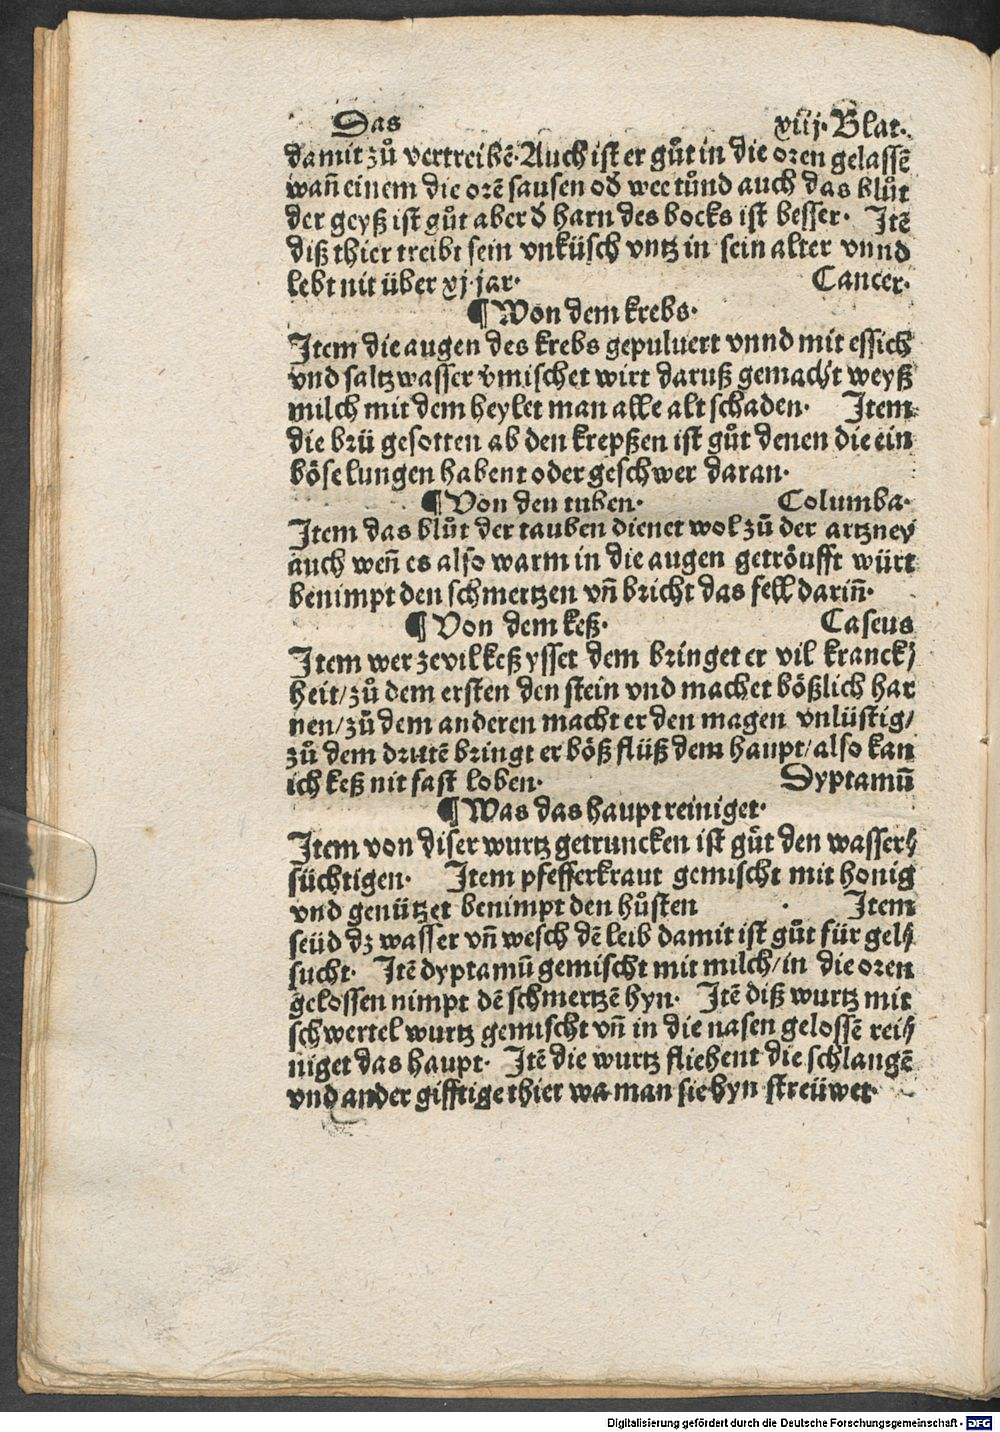 Das xiij· Blat·
damit zů vertreibē· Auch ist er gůt in die oren gelassē
wañ einem die orē sausen od̕ wee tůnd auch das blůt
der geyß ist gůt aber d̕ harn des bocks ist besser· Itē
diß thier treibt sein vnküsch vntz in sein alter vnnd
lebt nit über xj·jar· Cancer·
¶ Von dem krebs·
Item die augen des krebs gepuluert vnnd mit essich
vnd saltzwasser v̄mischet wirt daruß gemacht weyß
milch mit dem heylet man alle alt schaden· Item
die brü gesotten ab den krepßen ist gůt denen die ein
böse lungen habent oder geschwer daran·
¶ Von den tuben· Columba·
Item das blůt der tauben dienet wol zů der artzney
auch weñ es also warm in die augen getröufft würt
benimpt den schmertzen vñ bricht das fell dariñ·
¶ Von dem keß· Caseus
Item wer ze vil keß ysset dem bringet er vil kranck⸗
heit/ zů dem ersten den stein vnd machet bößlich har
nen/ zů dem anderen macht er den magen vnlüstig/
zů dem drittē bringt er böß flüß dem haupt/ also kan
ich keß nit fast loben· Dyptamū
¶ Was das haupt reiniget·
Item von diser wurtz getruncken ist gůt den wasser⸗
süchtigen· Item pfefferkraut gemischt mit honig
vnd genützet benimpt den hůsten · Item
seüd dz wasser vñ wesch dē leib damit ist gůt für gel⸗
sucht· Itē dyptamū gemischt mit milch/ in die oren
gelossen nimpt dē schmertzē hyn· Itē diß wurtz mit
schwertel wurtz gemischt vñ in die nasen gelossē rei⸗
niget das haupt· Itē die wurtz fliehent die schlangē
vnd ander gifftige thier wa man sie hyn streüwet·
Digitalisierung gefördert durch die Deutsche Forschungsgemeinschaft - DFG